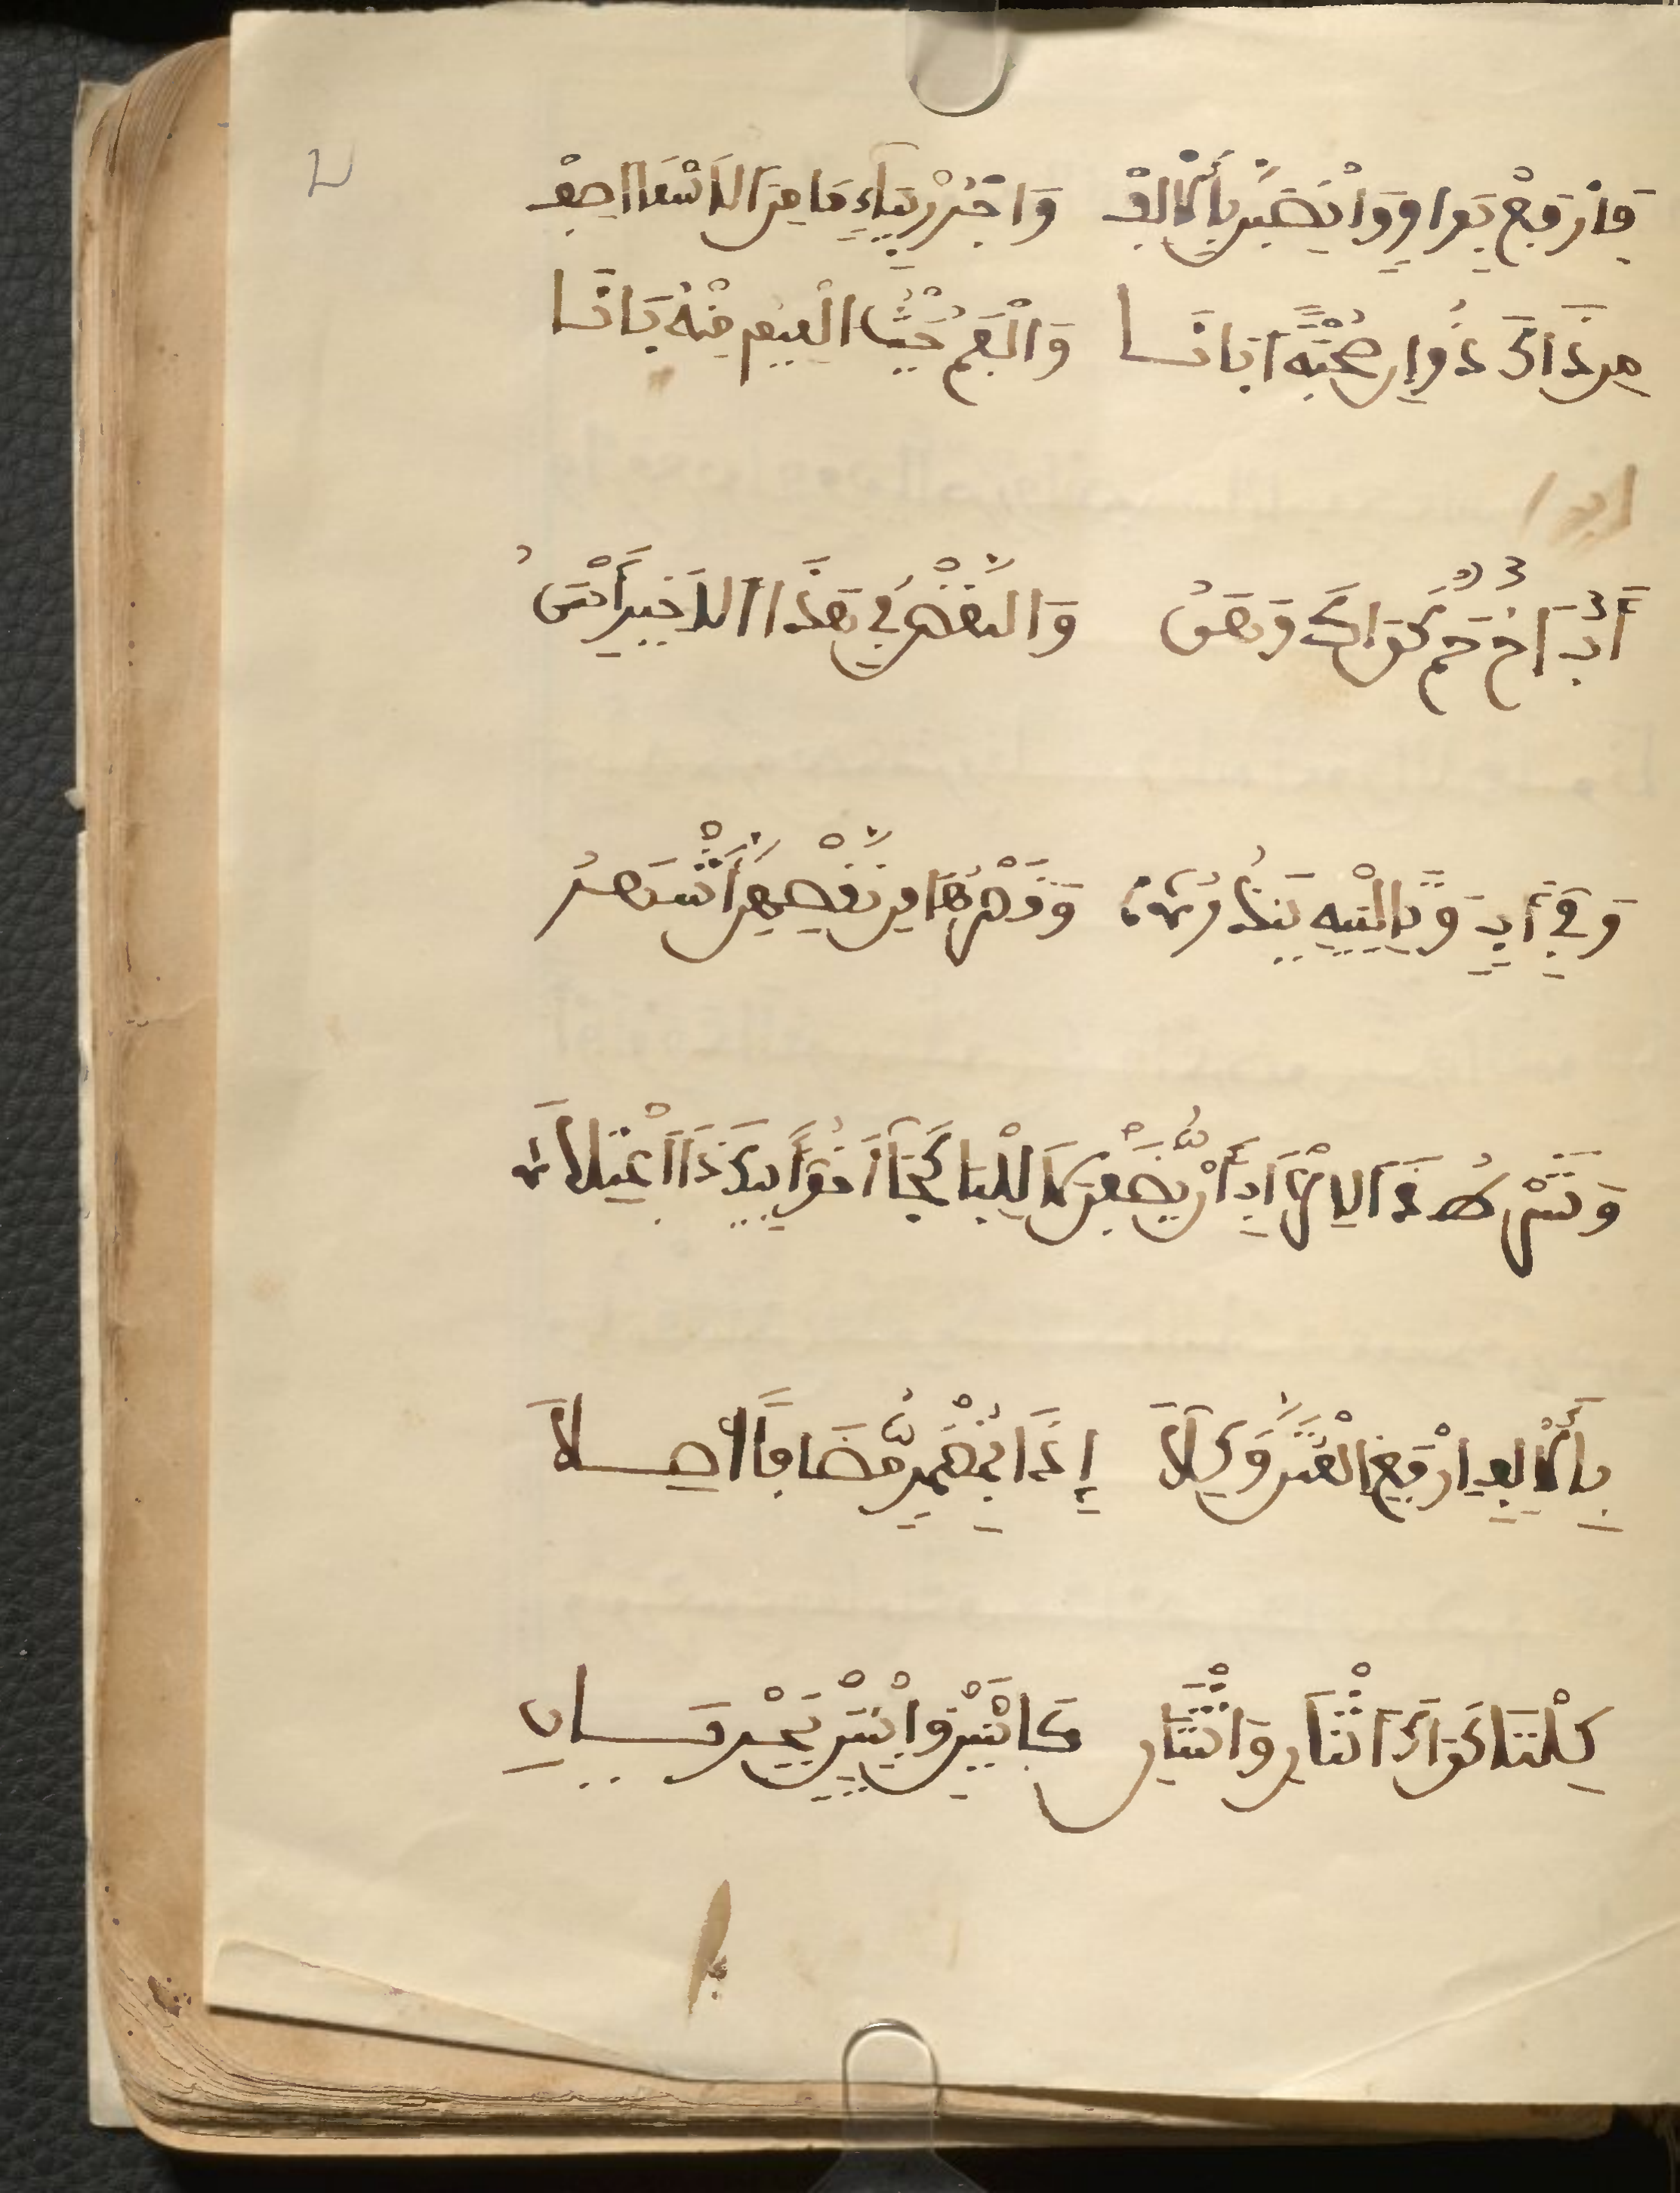 فَارْفَعْ بِوَاوٍ وَانْصِبَنَّ بِالْأَلِفْ وَاجْرُرْ بِيَاءٍ مَا مِنَ الْأَسْمَا أَصِفْ
مِنْ ذَاكَ ذُو إِنْ صُحْبَةً أَبَانَا وَالْفَمُ حَيْثُ الْمِيمُ مِنْهُ بَانَا
أَبٌ أَخٌ حَمٌ كَذَاكَ وَهَنُ وَالنَّقْصُ فِي هَذَا الْأَخِيرِ أَحْسَنُ
وَفِي أَبٍ وَتَالِيَيْهِ يَنْدُرُ وَقَصْرُهَا مِنْ نَقْصِهِنَّ أَشْهَرُ
وَشَرْطُ ذَا الْإِعْرَابِ أَنْ يُضَفْنَ لَا لِلْيَا كَجَا أَخُو أَبِيكَ ذَا اعْتِلَا
بِالْأَلِفِ ارْفَعِ الْمُثَنَّى وَكِلَا إِذَا بِمُضْمَرٍ مُضَافًا وُصِلَا
كِلْتَا كَذَاكَ اثْنَانِ وَاثْنَتَانِ كَابْنَيْنِ وَابْنَتَيْنِ يَجْرِيَانِ